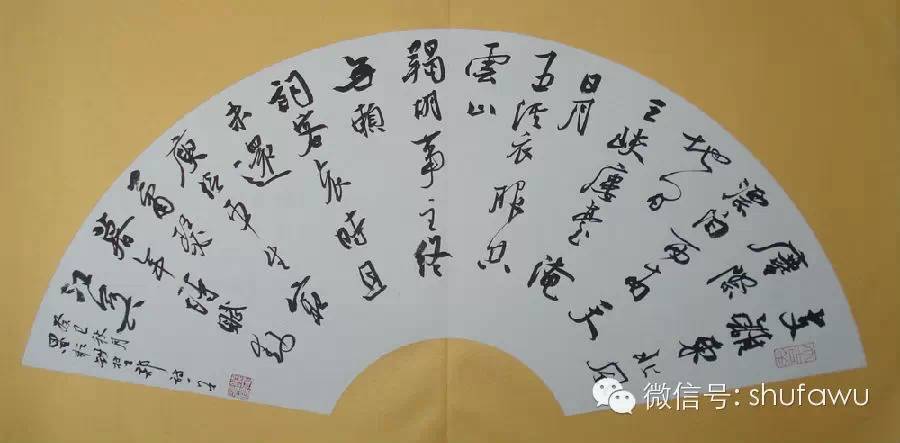 支離東北風
塵際
漂泊西南天
地間
三峽樓臺淹
日月
五溪衣服共
雲山
羯胡事主終
無賴
詞客哀時且
未還
庾信平生最
蕭瑟
暮年詩賦動
江關
癸巳秋月
微信号: shufawu